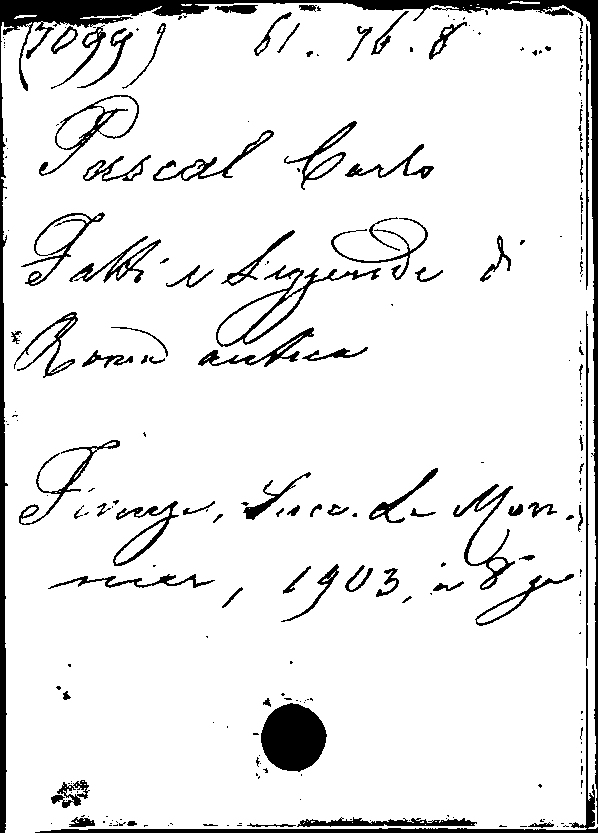 (7099) 61.76.8
Pascal Carlo
Fatti e Leggende di
Roma antica
Firenze, Succ. Le Mon-
nier, 1903, in 8